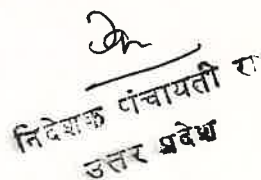 निदेशक पंचायती रा
उत्तर प्रदेश